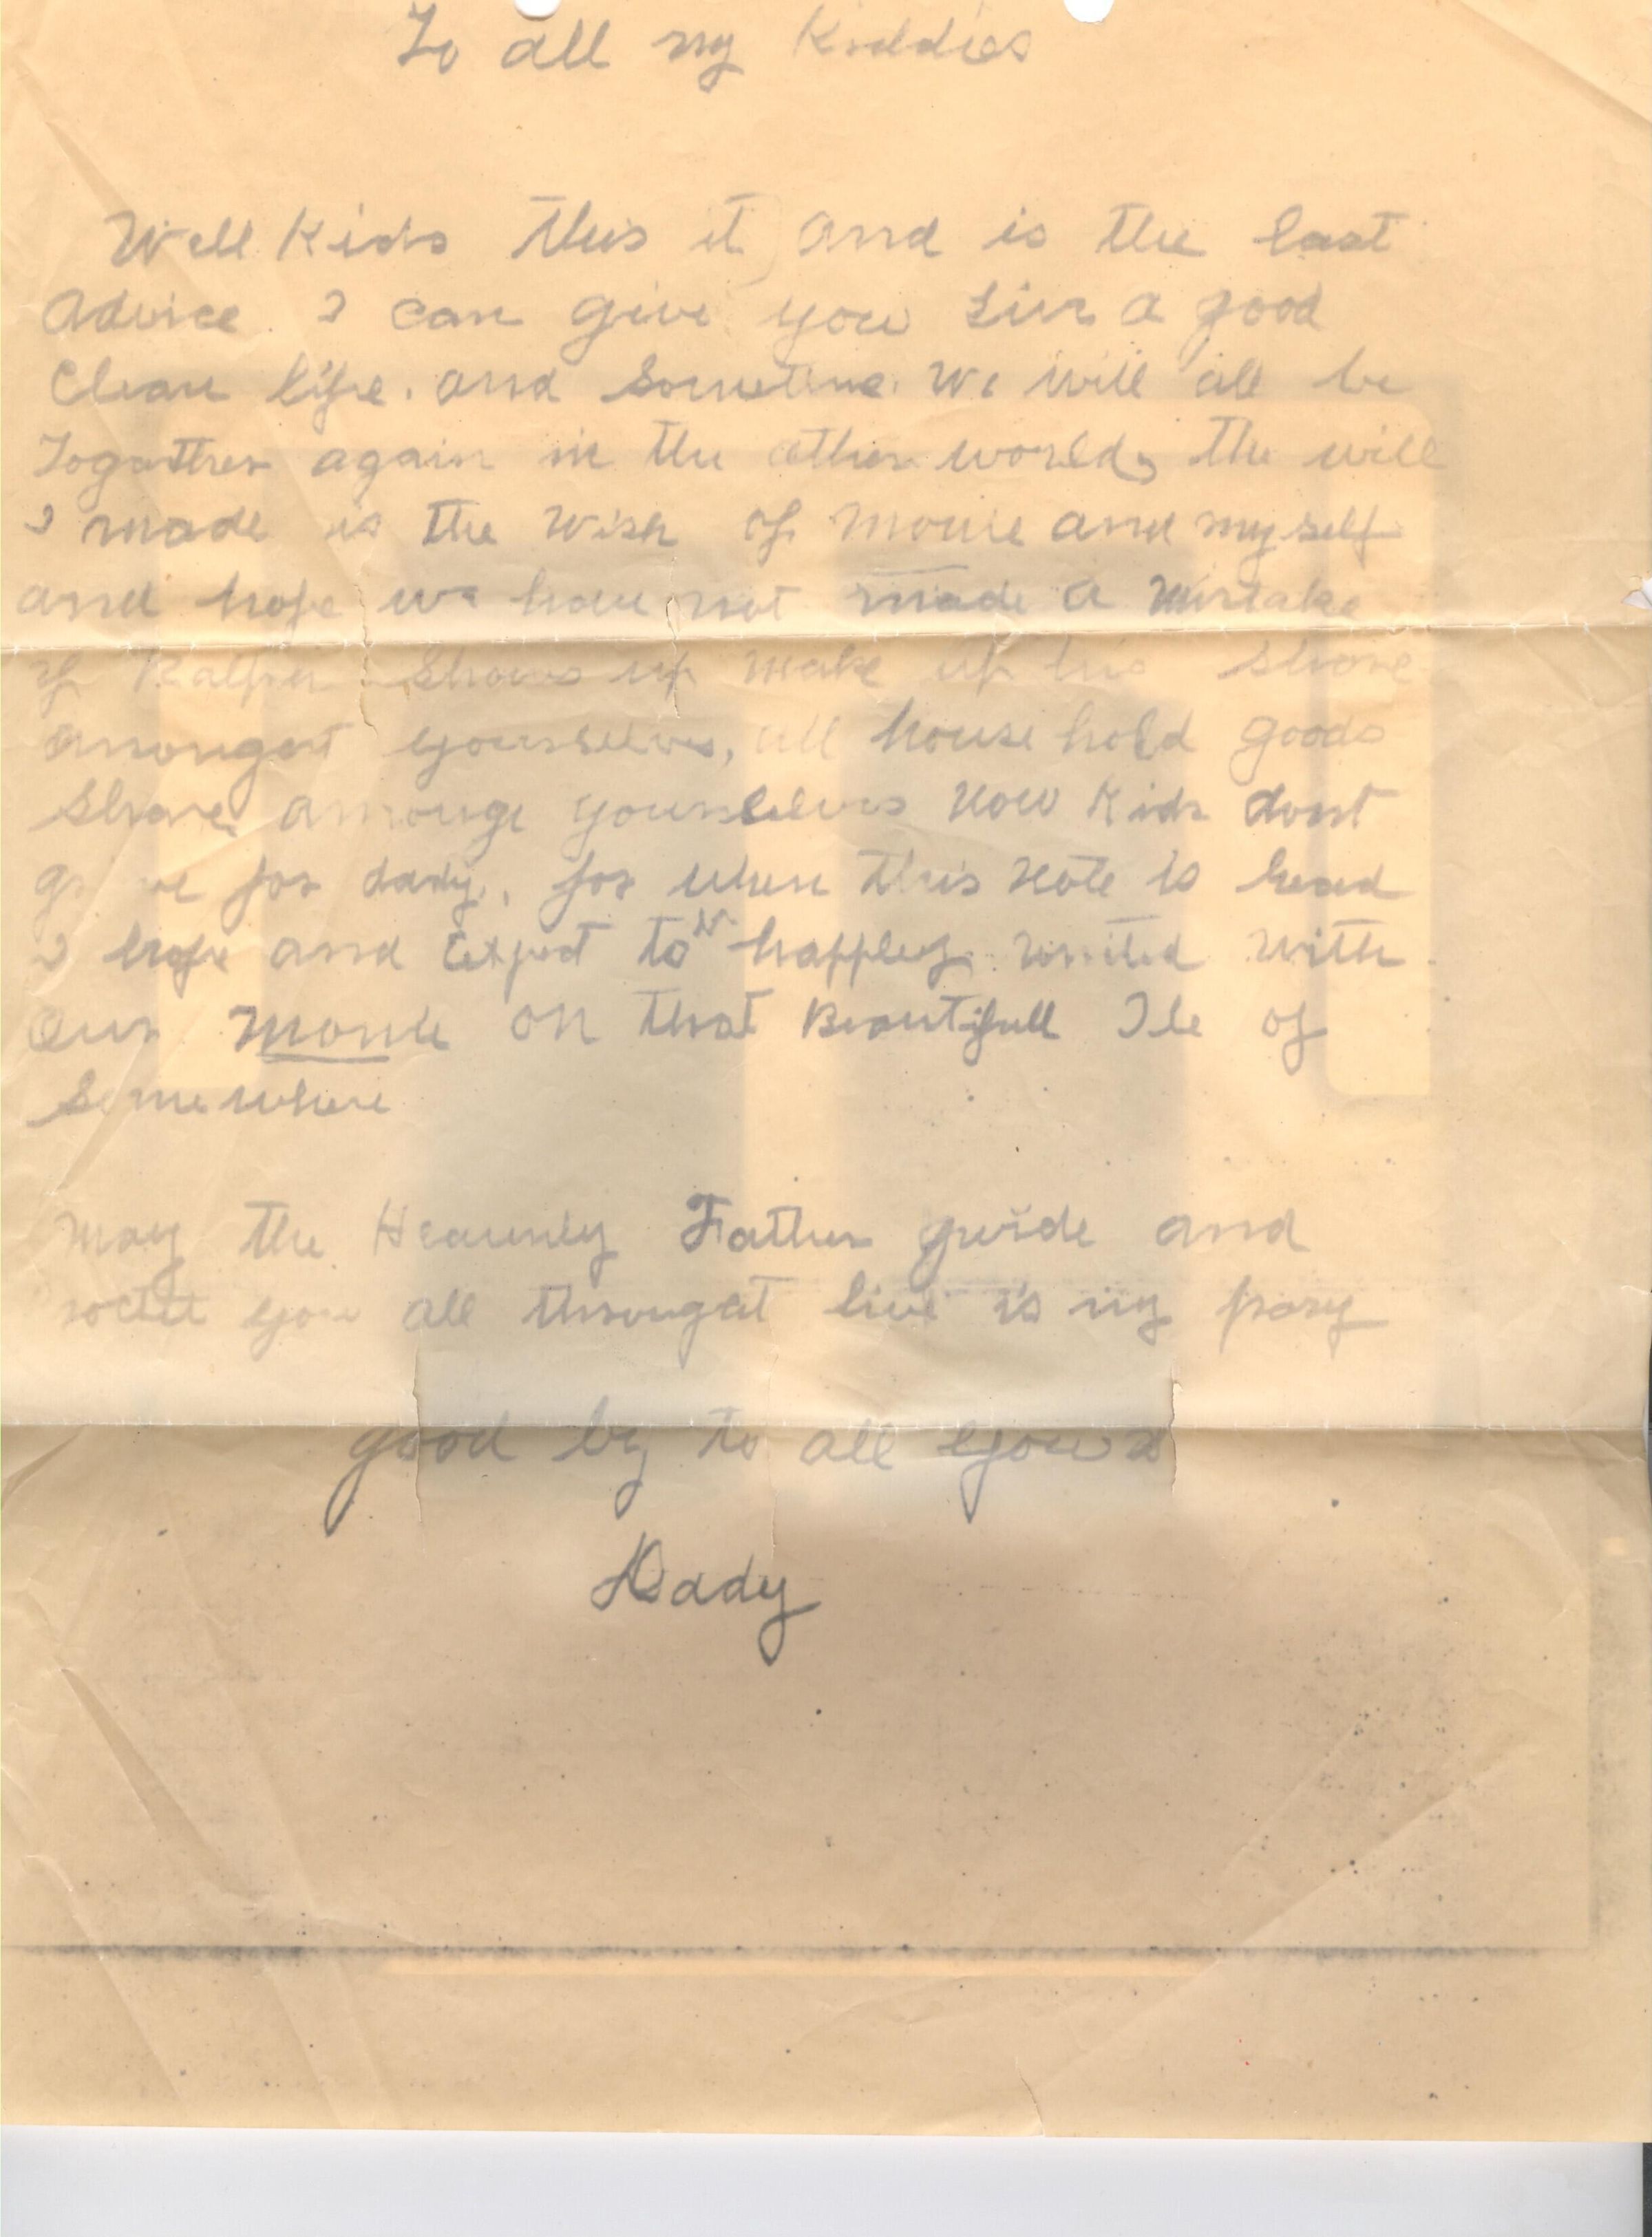 To all my Kiddies
Well Kids this it and is the last
Advice I can give you Live a good
Clean life. and sometime. We will all be
Togather again in the other world, the will
I made is the wish of and myself
and hope we have not made a Mistake
if Ralph shows up make up his share
amongest yourselves, all house hold goods
Share amounge yourselves Now Kids dont
for dady, for when this Note is read
I hope and Expect to be happley united with
our on that Beautifull Ile of
Somewhere
May the Heavenly Father guide and
you all througat live is my pray
good by to all of you
Dady